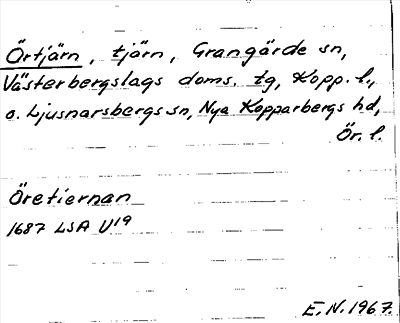 Örtjärn, tjärn, Grangärde sn,
Västerbergslags doms. tg, Kopp. l.,
o. Ljusnarsbergs sn, Nya Kopparbergs hd,
Ör. l.
Öretiernan
1687 LSA U19
E.N. 1967.